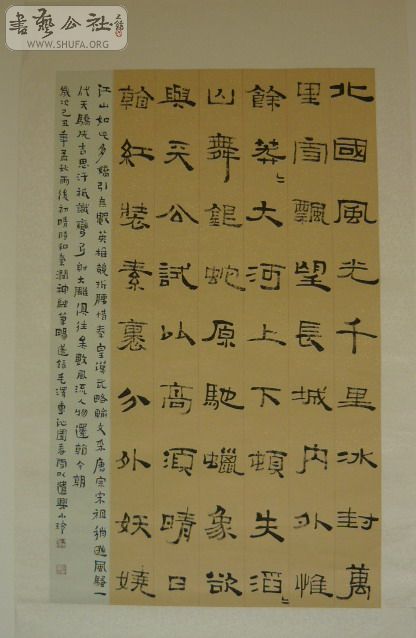 書藝公社
WWW.SHUFA.ORG
北國風光千里冰封萬
里雪飄望長城內外惟
餘莽〻大河上下頓失滔〻
山舞銀蛇原馳蠟象欲
與天公試比高須晴日
看紅裝素裹分外妖嬈
江山如此多嬌引無數英雄競折腰惜秦皇漢武略輸文采唐宗宋祖稍遜風騷一
代天驕成吉思汗祇識彎弓射大雕俱往矣數風流人物還看今朝
歲次己丑年孟秋雨後初晴時和氣潤神融筆暢毛澤東沁園春雪以遣興小珍